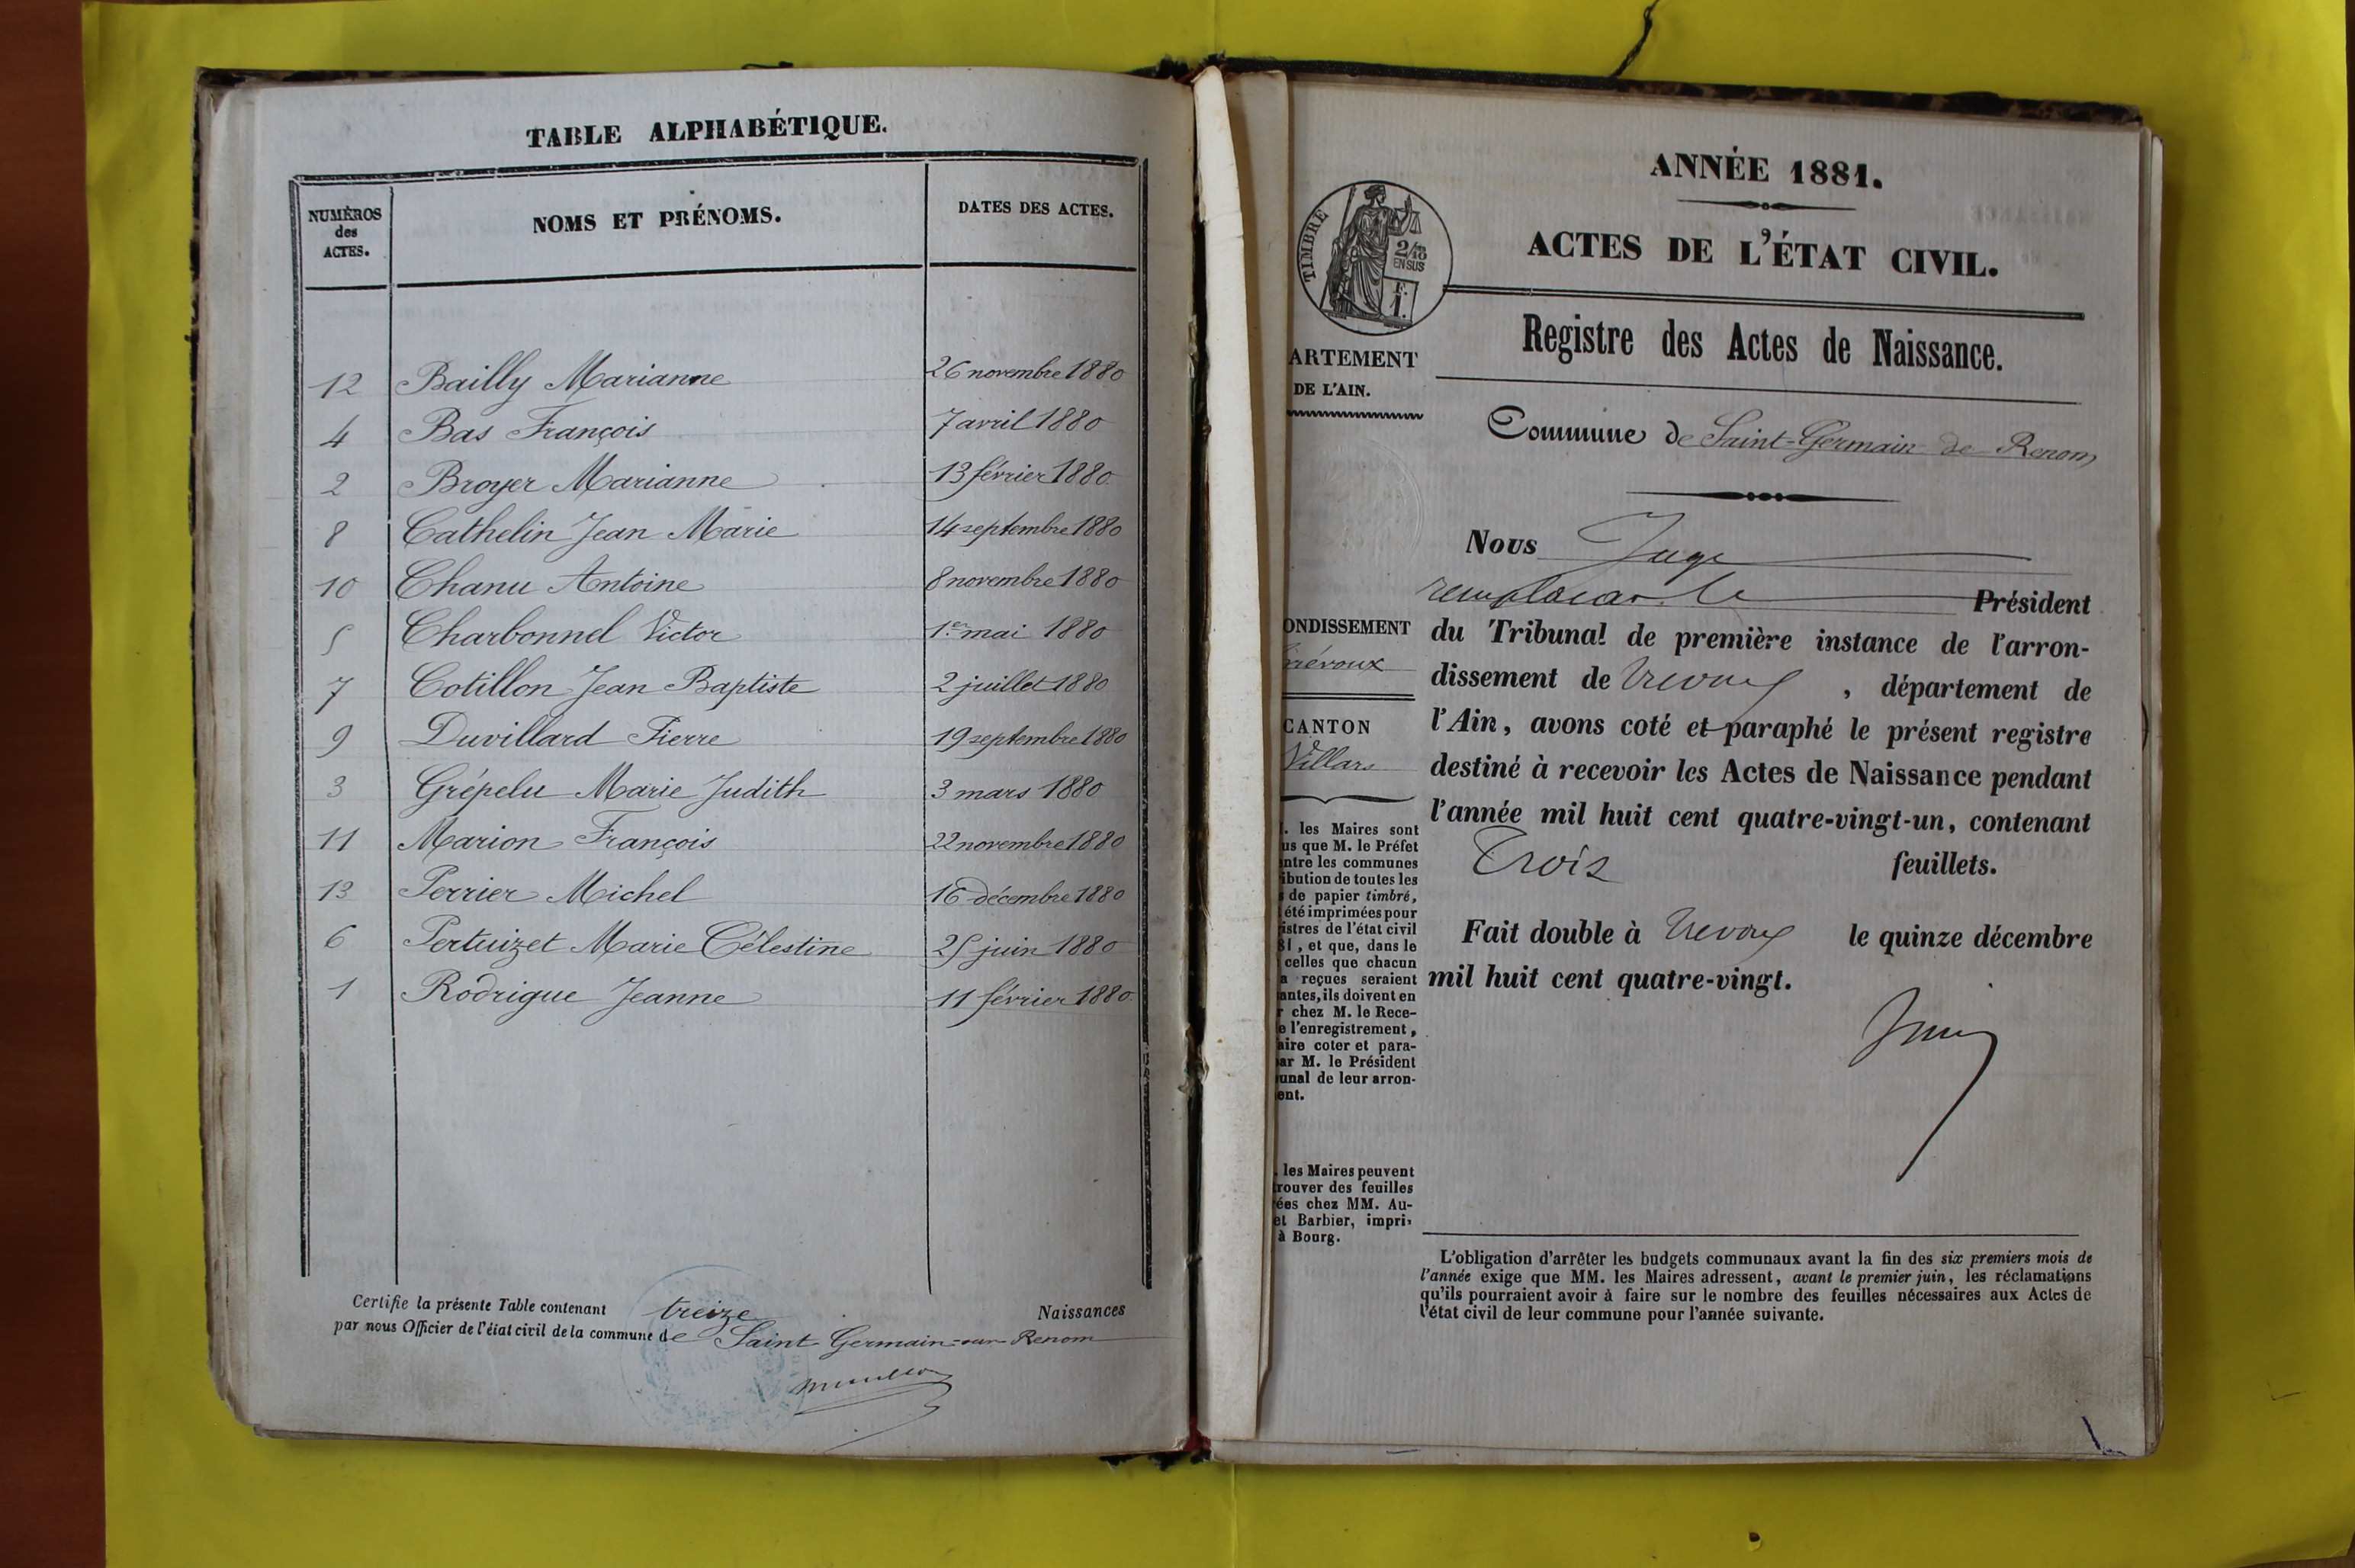 TABLE ALPHABÉTIQUE.
NUMÉROS des ACTES.
NOMS ET PRÉNOMS.
DATES DES ACTES.
12 Bailly Marianne 26 novembre 1880
4 Bas François 7 avril 1880
2 Broyer Marianne 13 février 1880
8 Cathelin Jean Marie 14 septembre 1880
10 Chanu Antoine 8 novembre 1880
5 Charbonnel Victor 1.er mai 1880
7 Cotillon Jean Baptiste 2 juillet 1880
9 Duvillard Pierre 19 septembre 1880
3 Grépelu Marie Judith 3 mars 1880
11 Marion François 22 novembre 1880
13 Perrier Michel 16 décembre 1880
6 Pertuizet Marie Célestine 25 juin 1880
1 Rodrigue Jeanne 11 février 1880
Certifie la présente Table contenant treize Naissances
par nous Officier de l'état civil de la commune de Saint Germain-sur-Renom
ANNÉE 1881.
ACTES DE L'ÉTAT CIVIL.
TIMBRE
2/10
EN SUS
F.
1.
Registre des Actes de Naissance.
ARTEMENT
DE L'AIN.
Commune de Saint-Germain-de-Renom
Nous Juge
remplaçant le Président
du Tribunal de première instance de l'arron-
dissement de Trevoux, département de
l'Ain, avons coté et paraphé le présent registre
destiné à recevoir les Actes de Naissance pendant
l'année mil huit cent quatre-vingt-un, contenant
Trois feuillets.
Fait double à Trevoux le quinze décembre
mil huit cent quatre-vingt.
ONDISSEMENT
révoux
CANTON
Villars
. les Maires sont
us que M. le Préfet
ntre les communes
ibution de toutes les
de papier timbré,
été imprimées pour
istres de l'état civil
81, et que, dans le
celles que chacun
a reçues seraient
antes, ils doivent en
r chez M. le Rece-
e l'enregistrement,
aire coter et para-
ar M. le Président
unal de leur arron-
ent.
. les Maires peuvent
trouver des feuilles
ées chez MM. Au-
et Barbier, impri-
à Bourg.
L'obligation d'arrêter les budgets communaux avant la fin des six premiers mois de
l'année exige que MM. les Maires adressent, avant le premier juin, les réclamations
qu'ils pourraient avoir à faire sur le nombre des feuilles nécessaires aux Actes de
l'état civil de leur commune pour l'année suivante.